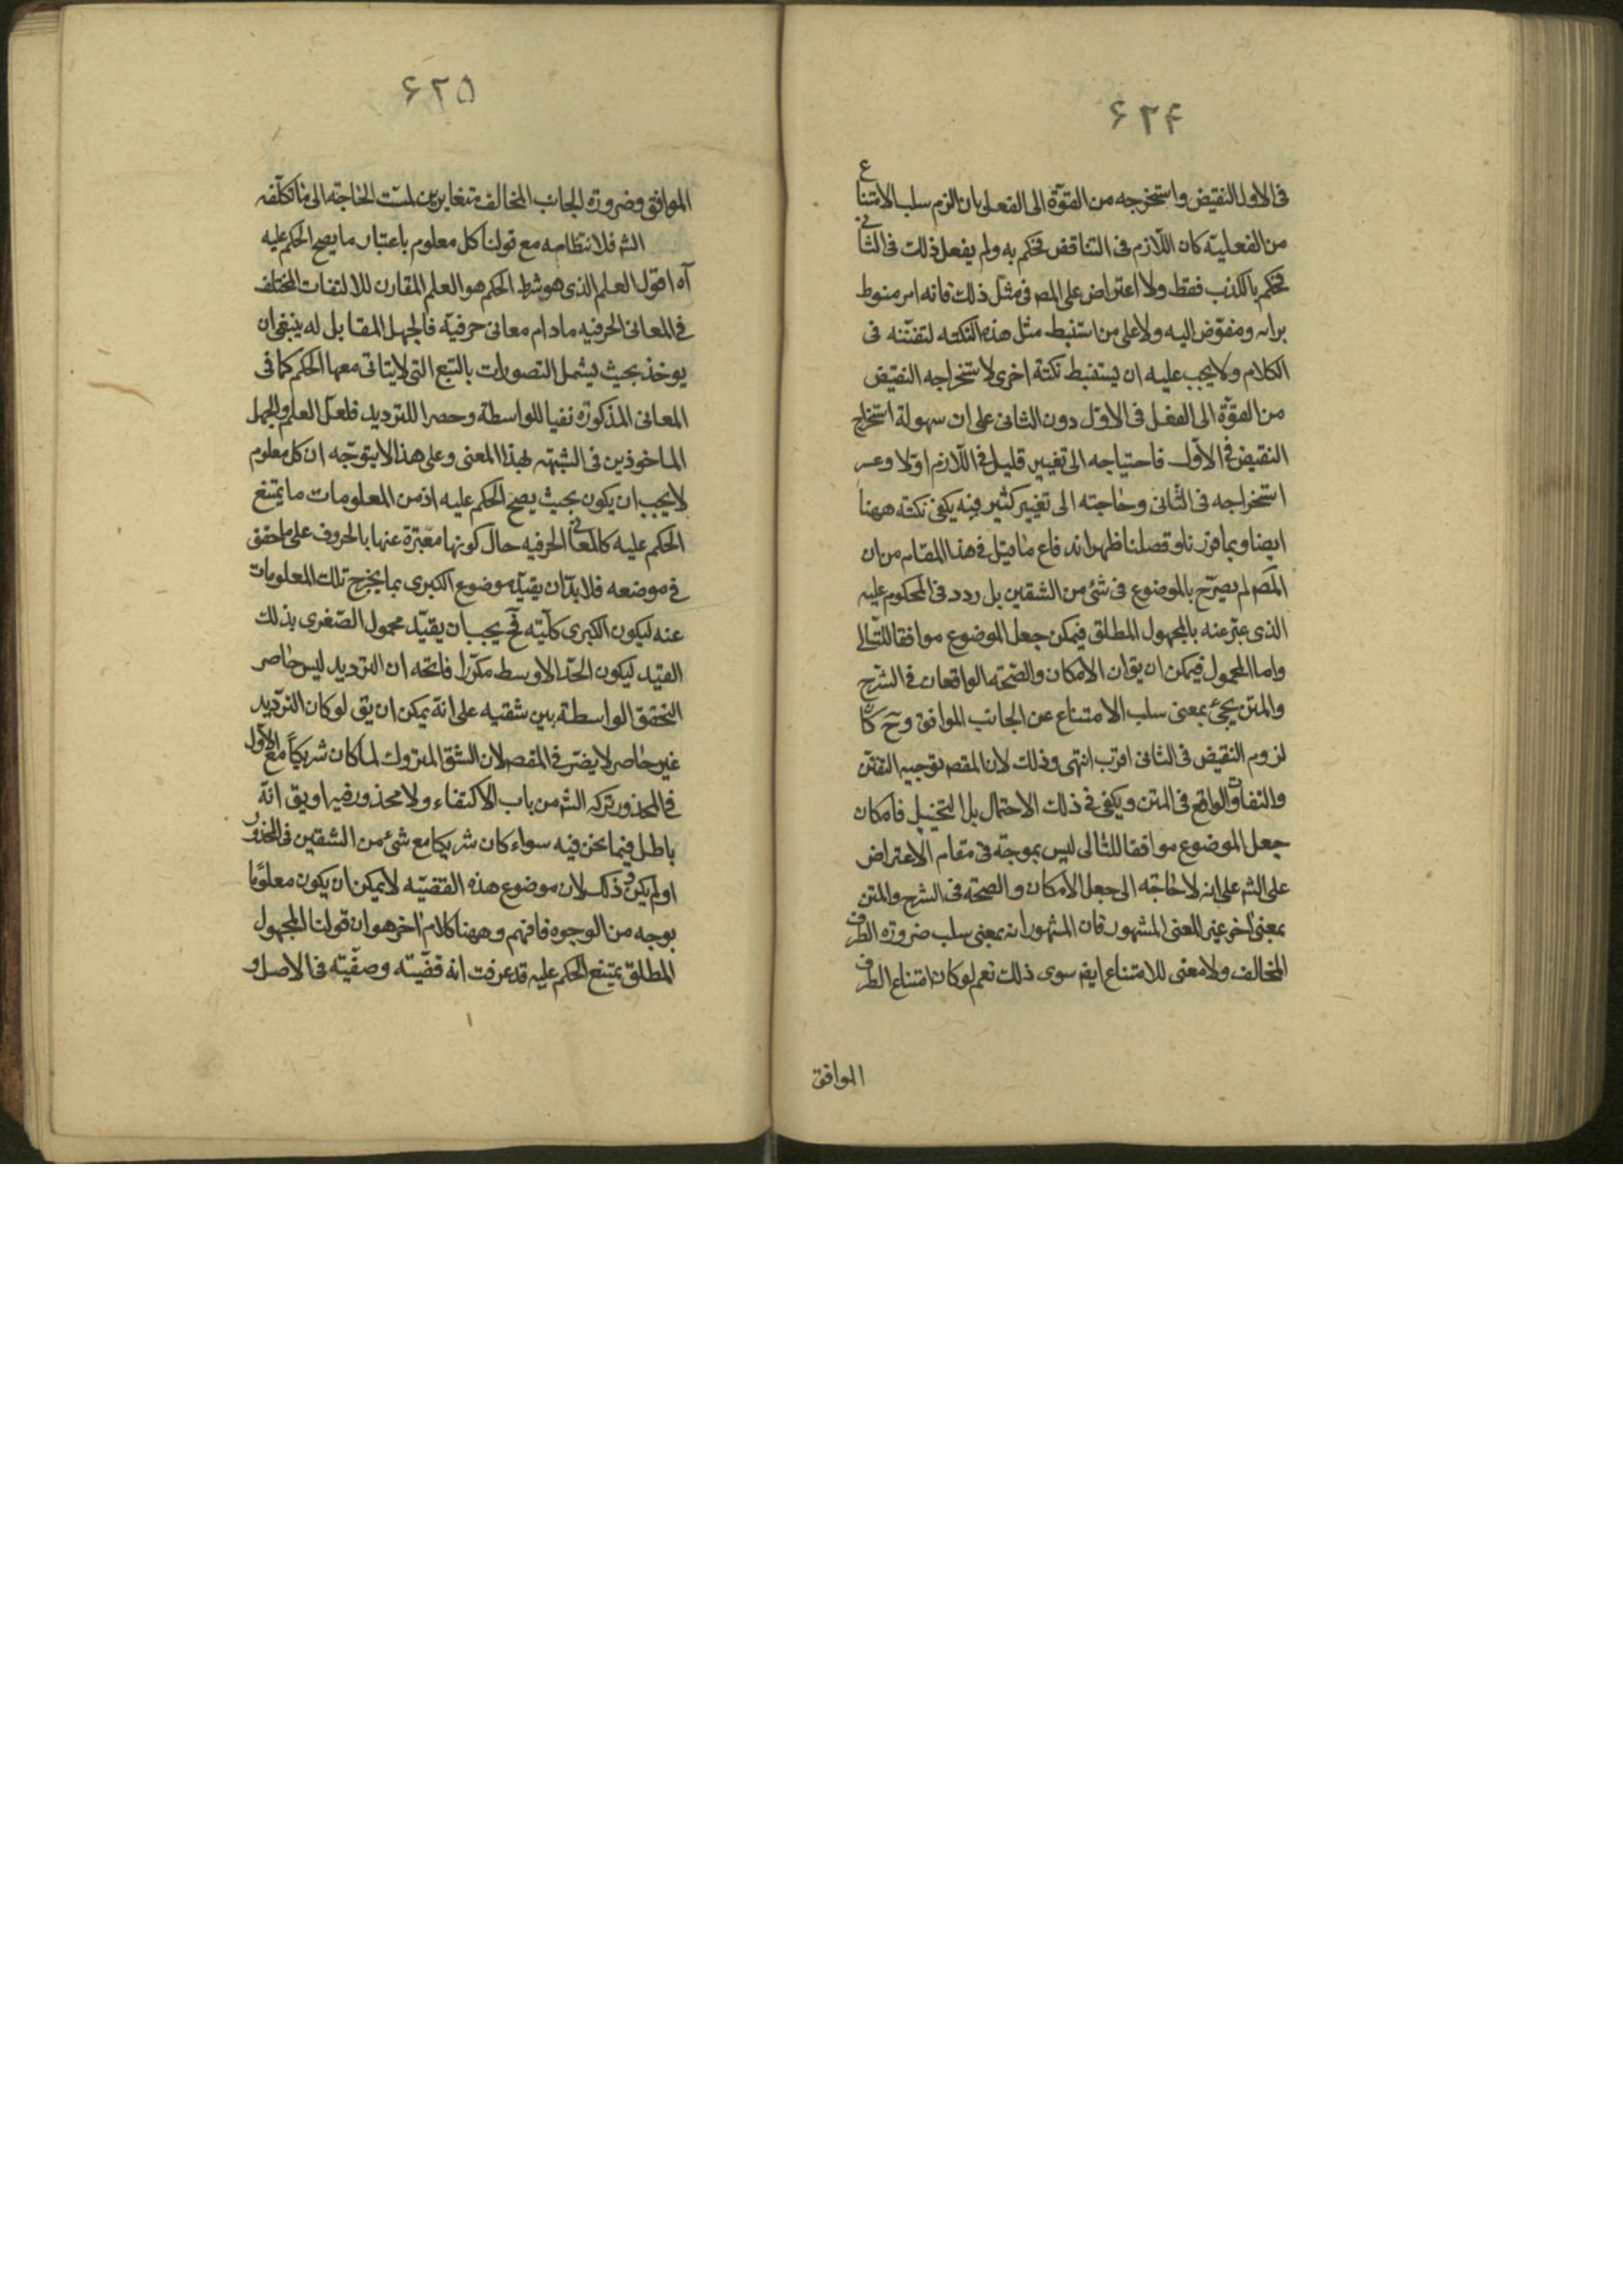 ۶۲۴
فى الاول النقيض واستخرجه من القوّة الى الفعل بان الزم سلب الامتناع
من الفعليته كان اللّازم فى التناقض فحكم به ولم يفعل ذلك فى الثانى
فحكم بالكذب فقط ولا اعتراض على المص فى مثل ذلك فانه امر منوط
برايه ومفوّض اليه ولا على من استنبط مثل هذه النكته لتفنّنه فى
الكلام ولا يجب عليه ان يستنبط نكتة اخرى لاستخراجه النقيض
من القوّة الى الفعل فى الاوّل دون الثانى على ان سهولة استخراج
النقيض فى الاوّل فاحتياجه الى تغيير قليل فى اللّازم اوّلا وعسر
استخراجه فى الثانى وحاجته الى تغيير كثير فيه يكفى نكتة ههنا
ايضا وبما قررنا وفصلنا ظهر اندفاع ما قيل فى هذا المقام من ان
المص لم يصرّح بالموضوع فى شئ من الشقين بل ردد فى المحكوم عليه
الذى عبّر عنه بالمجهول المطلق فيمكن جعل الموضوع موافقا للتّالى
واما المحمول فيمكن ان يق ان الامكان والصّحته الواقعان فى الشرح
والمتن يجئ بمعنى سلب الامتناع عن الجانب الموافق وح كان
لزوم النقيض فى الثانى اقرب انتهى وذلك لان المقصـ توجيه التفنن
والتفاوت الواقع فى المتن ويكفى فى ذلك الاحتمال بل التخييل فامكان
جعل الموضوع موافقا للتالى ليس بموجّه فى مقام الاعتراض
على الشـ على انه لا حاجته الى جعل الامكان والصحته فى الشرح والمتن
بمعنى اخر غير المعنى المشهور فان المشهور انه بمعنى سلب ضرورة الطرف
المخالف ولا معنى للامتناع ايضـ سوى ذلك نعم لو كان امتناع الطرف
الموافق
۶۲۵
الموافق وضرورة الجانب المخالف متغايرين لمسّت الحاجته الى ما تكلّفه
الشـ فلانتظامه مع قولنا كل معلوم باعتبار ما يصح الحكم عليه
آه اقول العلم الذى هو شرط الحكم هو العلم المقارن للالتفات المختلف
فى المعانى الحرفيه مادام معانى حرفيّة فالجهل المقابل له ينبغى ان
يوخذ بحيث يشمل التصورات بالتبع التى لا يتاتى معها الحكم كما فى
المعانى المذكورة نفيا للواسطة وحصرا للترديد فلعلّ العلم والجهل
الماخوذين فى الشبهته بهذا المعنى وعلى هذا لا يتوجّه ان كل معلوم
لا يجب ان يكون بحيث يصح الحكم عليه اذ من المعلومات ما يمتنع
الحكم عليه كالمعانى الحرفيه حال كونها معبّرة عنها بالحروف على ما حقق
فى موضعه فلا بدّ ان يقيّد موضوع الكبرى بما يخرج تلك المعلومات
عنه ليكون الكبرى كلّيّته فح يجب ان يقيّد محمول الصّغرى بذلك
القيد ليكون الحدّ الاوسط مكرّرا فاتجه ان الترديد ليس حاصر
التحقق الواسطة بين شقّيه على انه يمكن ان يق لو كان الترديد
غير حاصر لا يضرّ فى المقصـ لان الشق المتروك لما كان شريكًا مع الاول
فى المحذور بتركه الشـ من باب الاكتفاء ولا محذور فيه او يق انه
باطل فيما نحن فيه سواء كان شريكا مع شئ من الشقين فى المحذور
او لم يكن وذلك لان موضوع هذه القضيّه لا يمكن ان يكون معلومًا
بوجه من الوجوه فافهم وههنا كلام اخر هو ان قولنا المجهول
المطلق يمتنع الحكم عليه قد عرفت انه قضيّته وصفيّته فى الاصل و